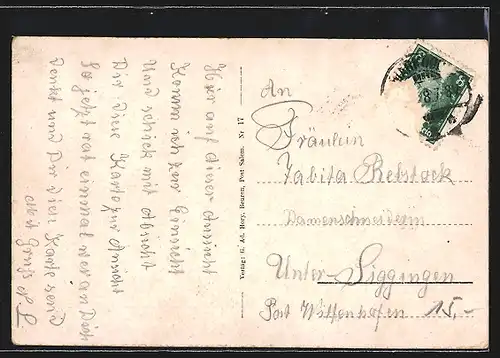 Hier auf dieser Ansicht
Kann ich zur Einsicht
Und schick mit Absicht
Dir diese Karte zur Ansicht
So jetzt rat einmal wer an Dich
denkt und Dir diese Karte send
Mit Gruß
Verlag: G. Ad. Horg, Beuren, Post Salem. Nr. 17
An
Fräulein
Tabita Rebstock
Damenschneiderin
Unter-Siggingen
Post Wittenhofen 15,-